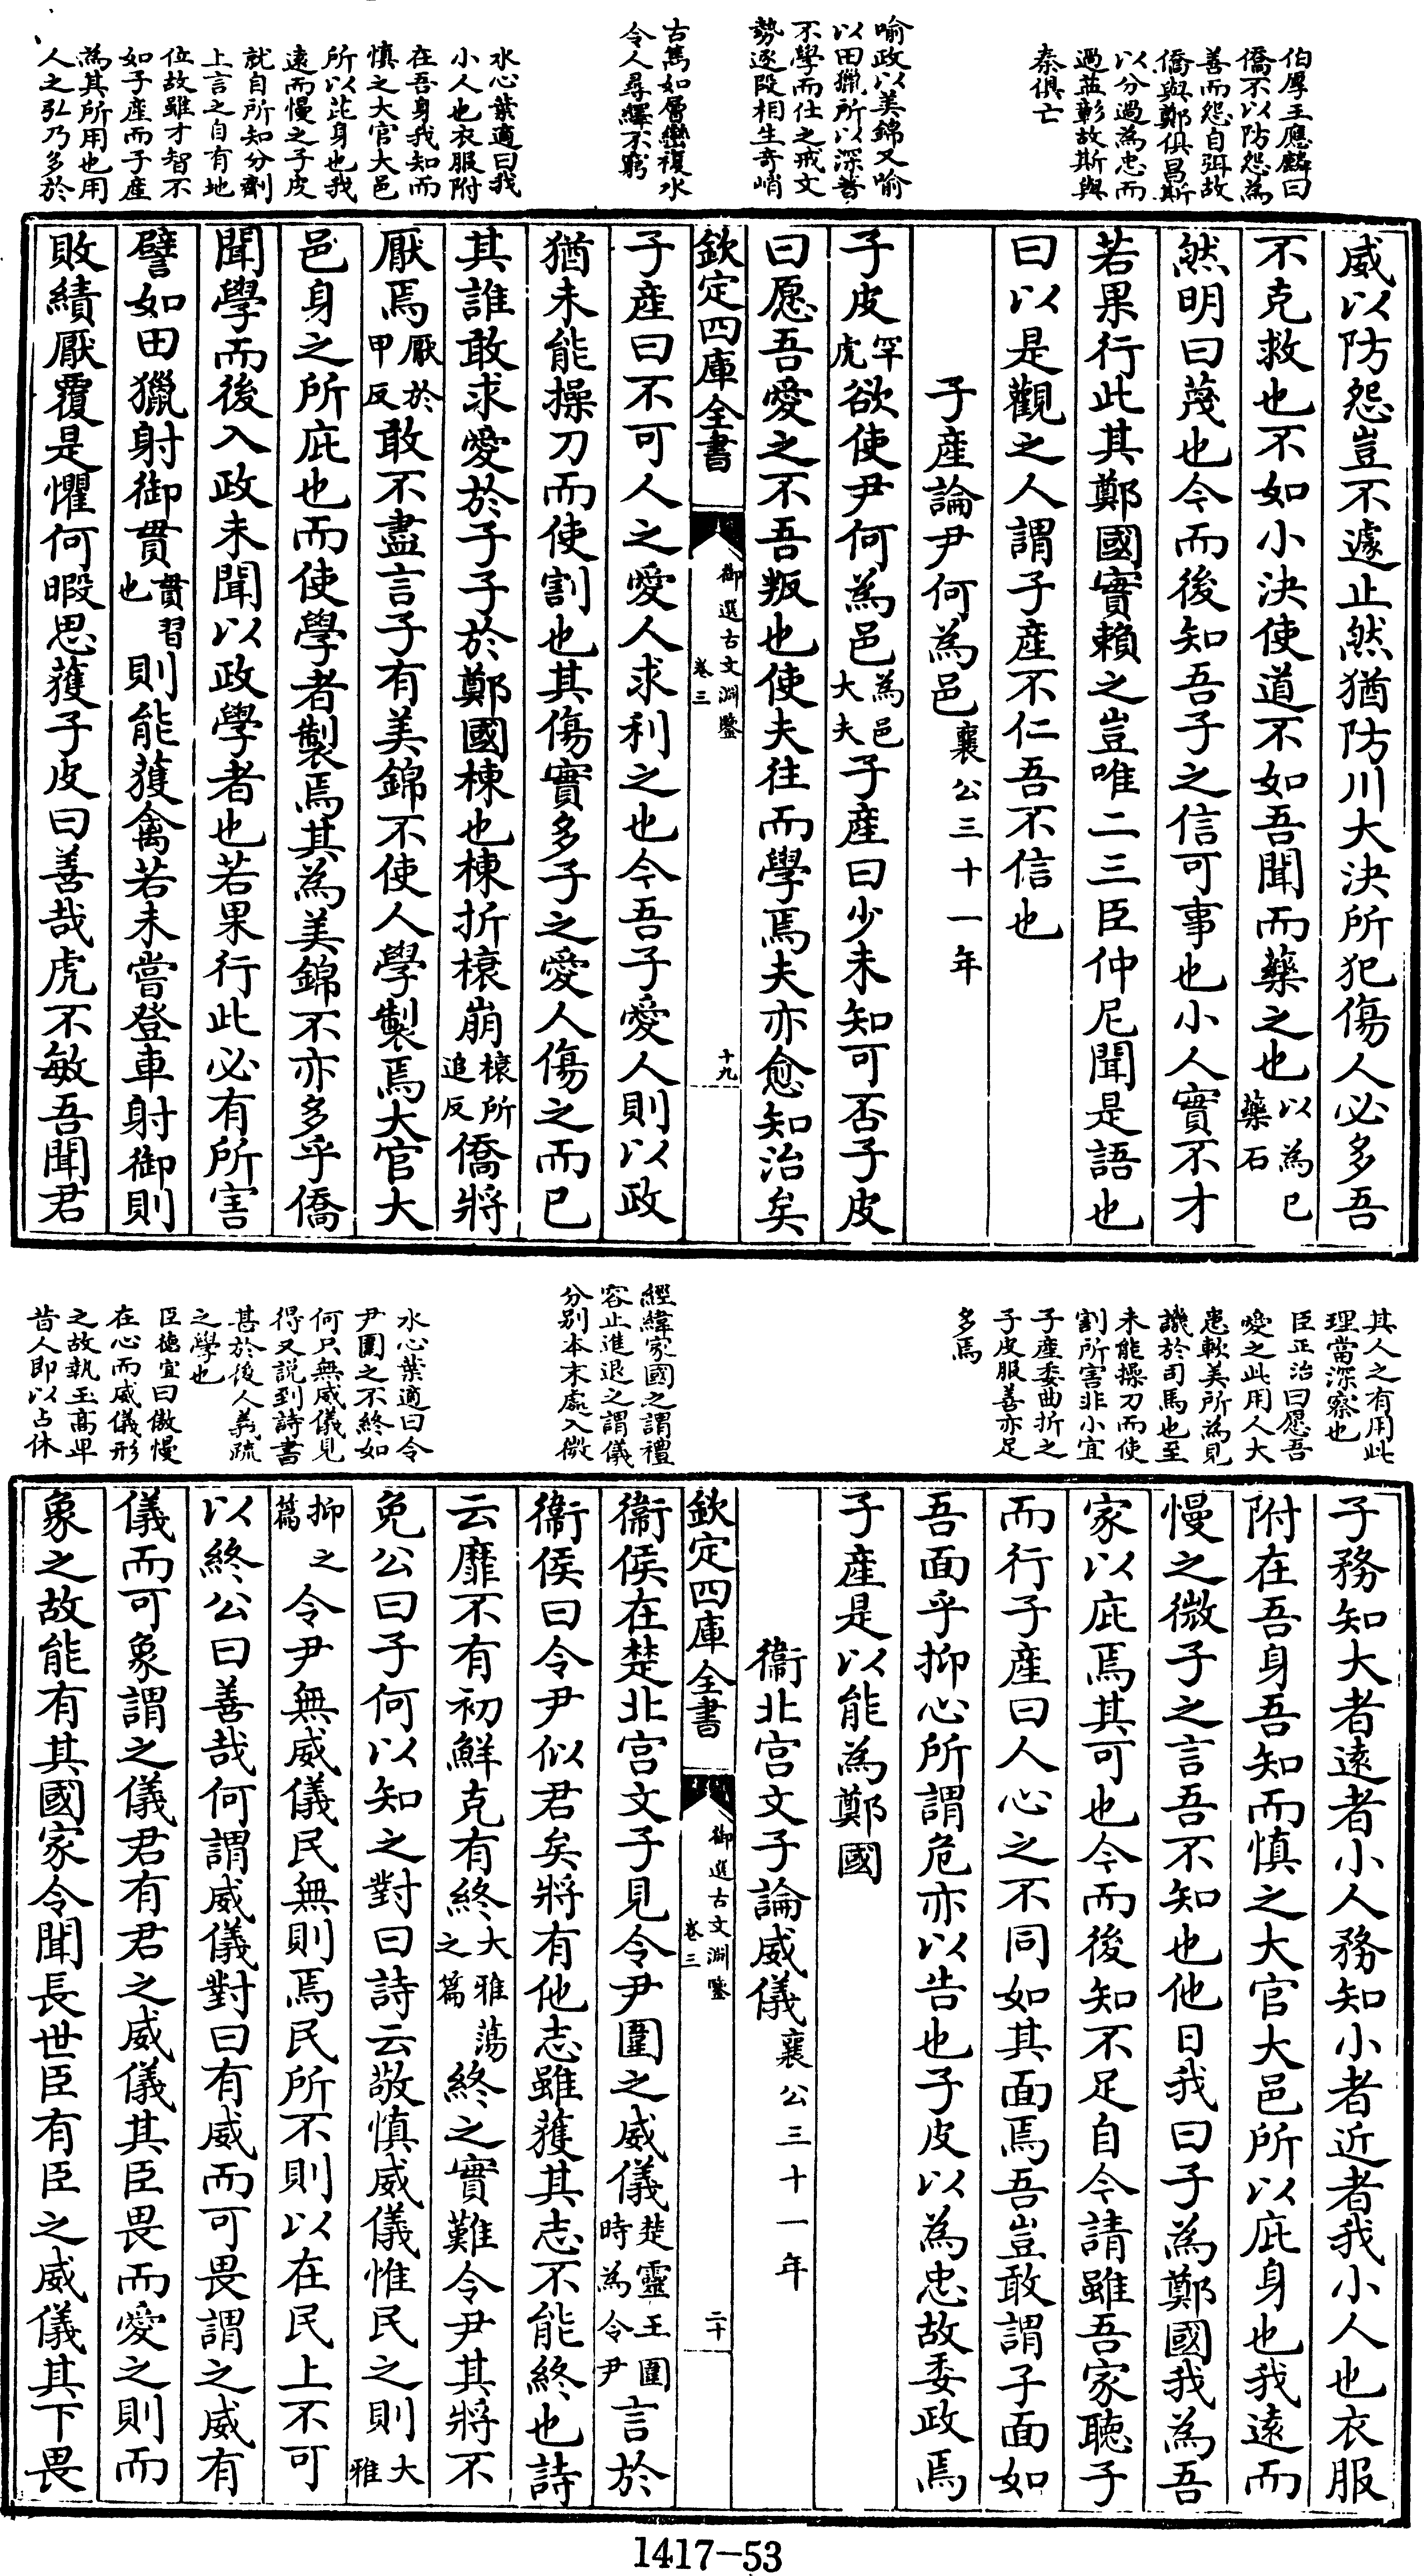 伯厚王應麟曰
僑不以防怨為
善而怨自弭故
僑與鄭俱昌斯
以分過為忠而
過益彰故斯與
秦俱亡
喻政以美錦又喻
以田獵所以深着
不學而仕之戒文
勢逐段相生奇峭
古雋如層巒複水
令人尋繹不窮
水心葉適曰我
小人也衣服附
在吾身我知而
慎之大官大邑
所以芘身也我
遠而慢之子皮
就自所知分劑
上言之自有地
位故雖才智不
如子產而子產
為其所用也用
人之弘乃多於
威以防怨豈不遽止然猶防川大決所犯傷人必多吾
不克救也不如小決使道不如吾聞而藥之也以為已藥石
然明曰蔑也今而後知吾子之信可事也小人實不才
若果行此其鄭國實賴之豈唯二三臣仲尼聞是語也
曰以是觀之人謂子產不仁吾不信也
子產論尹何為邑襄公三十一年
子皮罕虎欲使尹何為邑為邑大夫子產曰少未知可否子皮
曰愿吾愛之不吾叛也使夫往而學焉夫亦愈知治矣
欽定四庫全書 御選古文淵鑒 卷三 十九
子產曰不可人之愛人求利之也今吾子愛人則以政
猶未能操刀而使割也其傷實多子之愛人傷之而已
其誰敢求愛於子子於鄭國棟也棟折榱崩榱所追反僑將
厭焉厭於甲反敢不盡言子有美錦不使人學製焉大官大
邑身之所庇也而使學者製焉其為美錦不亦多乎僑
聞學而後入政未聞以政學者也若果行此必有所害
譬如田獵射御貫貫習也則能獲禽若未嘗登車射御則
敗績厭覆是懼何暇思獲子皮曰善哉虎不敏吾聞君
其人之有用此
理當深察也
臣正治曰愿吾
愛之此用人大
患軟美所為見
譏於司馬也至
未能操刀而使
割所害非小宜
子產委曲折之
子皮服善亦足
多焉
經緯家國之謂禮
容止進退之謂儀
分別本末處入微
水心葉適曰令
尹圍之不終如
何只無威儀見
得又說到詩書
甚於後人義疏
之學也
臣德宜曰傲慢
在心而威儀形
之故執玉高卑
昔人即以占休
子務知大者遠者小人務知小者近者我小人也衣服
附在吾身吾知而慎之大官大邑所以庇身也我遠而
慢之微子之言吾不知也他日我曰子為鄭國我為吾
家以庇焉其可也今而後知不足自今請雖吾家聽子
而行子產曰人心之不同如其面焉吾豈敢謂子面如
吾面乎抑心所謂危亦以告也子皮以為忠故委政焉
子產是以能為鄭國
衞北宫文子論威儀襄公三十一年
欽定四庫全書 御選古文淵鑒 卷三 二十
衞侯在楚北宫文子見令尹圍之威儀楚靈王圍時為令尹言於
衞侯曰令尹似君矣將有他志雖獲其志不能終也詩
云靡不有初鮮克有終大雅蕩之篇終之實難令尹其將不
免公曰子何以知之對曰詩云敬慎威儀惟民之則大雅
抑之篇令尹無威儀民無則焉民所不則以在民上不可
以終公曰善哉何謂威儀對曰有威而可畏謂之威有
儀而可象謂之儀君有君之威儀其臣畏而愛之則而
象之故能有其國家令聞長世臣有臣之威儀其下畏
1417-53